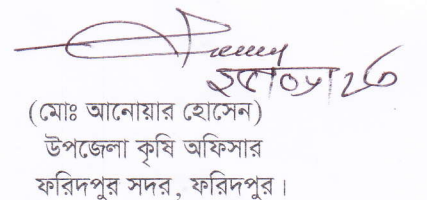 (মোঃ আনোয়ার হোসেন)
উপজেলা কৃষি অফিসার
ফরিদপুর সদর, ফরিদপুর।